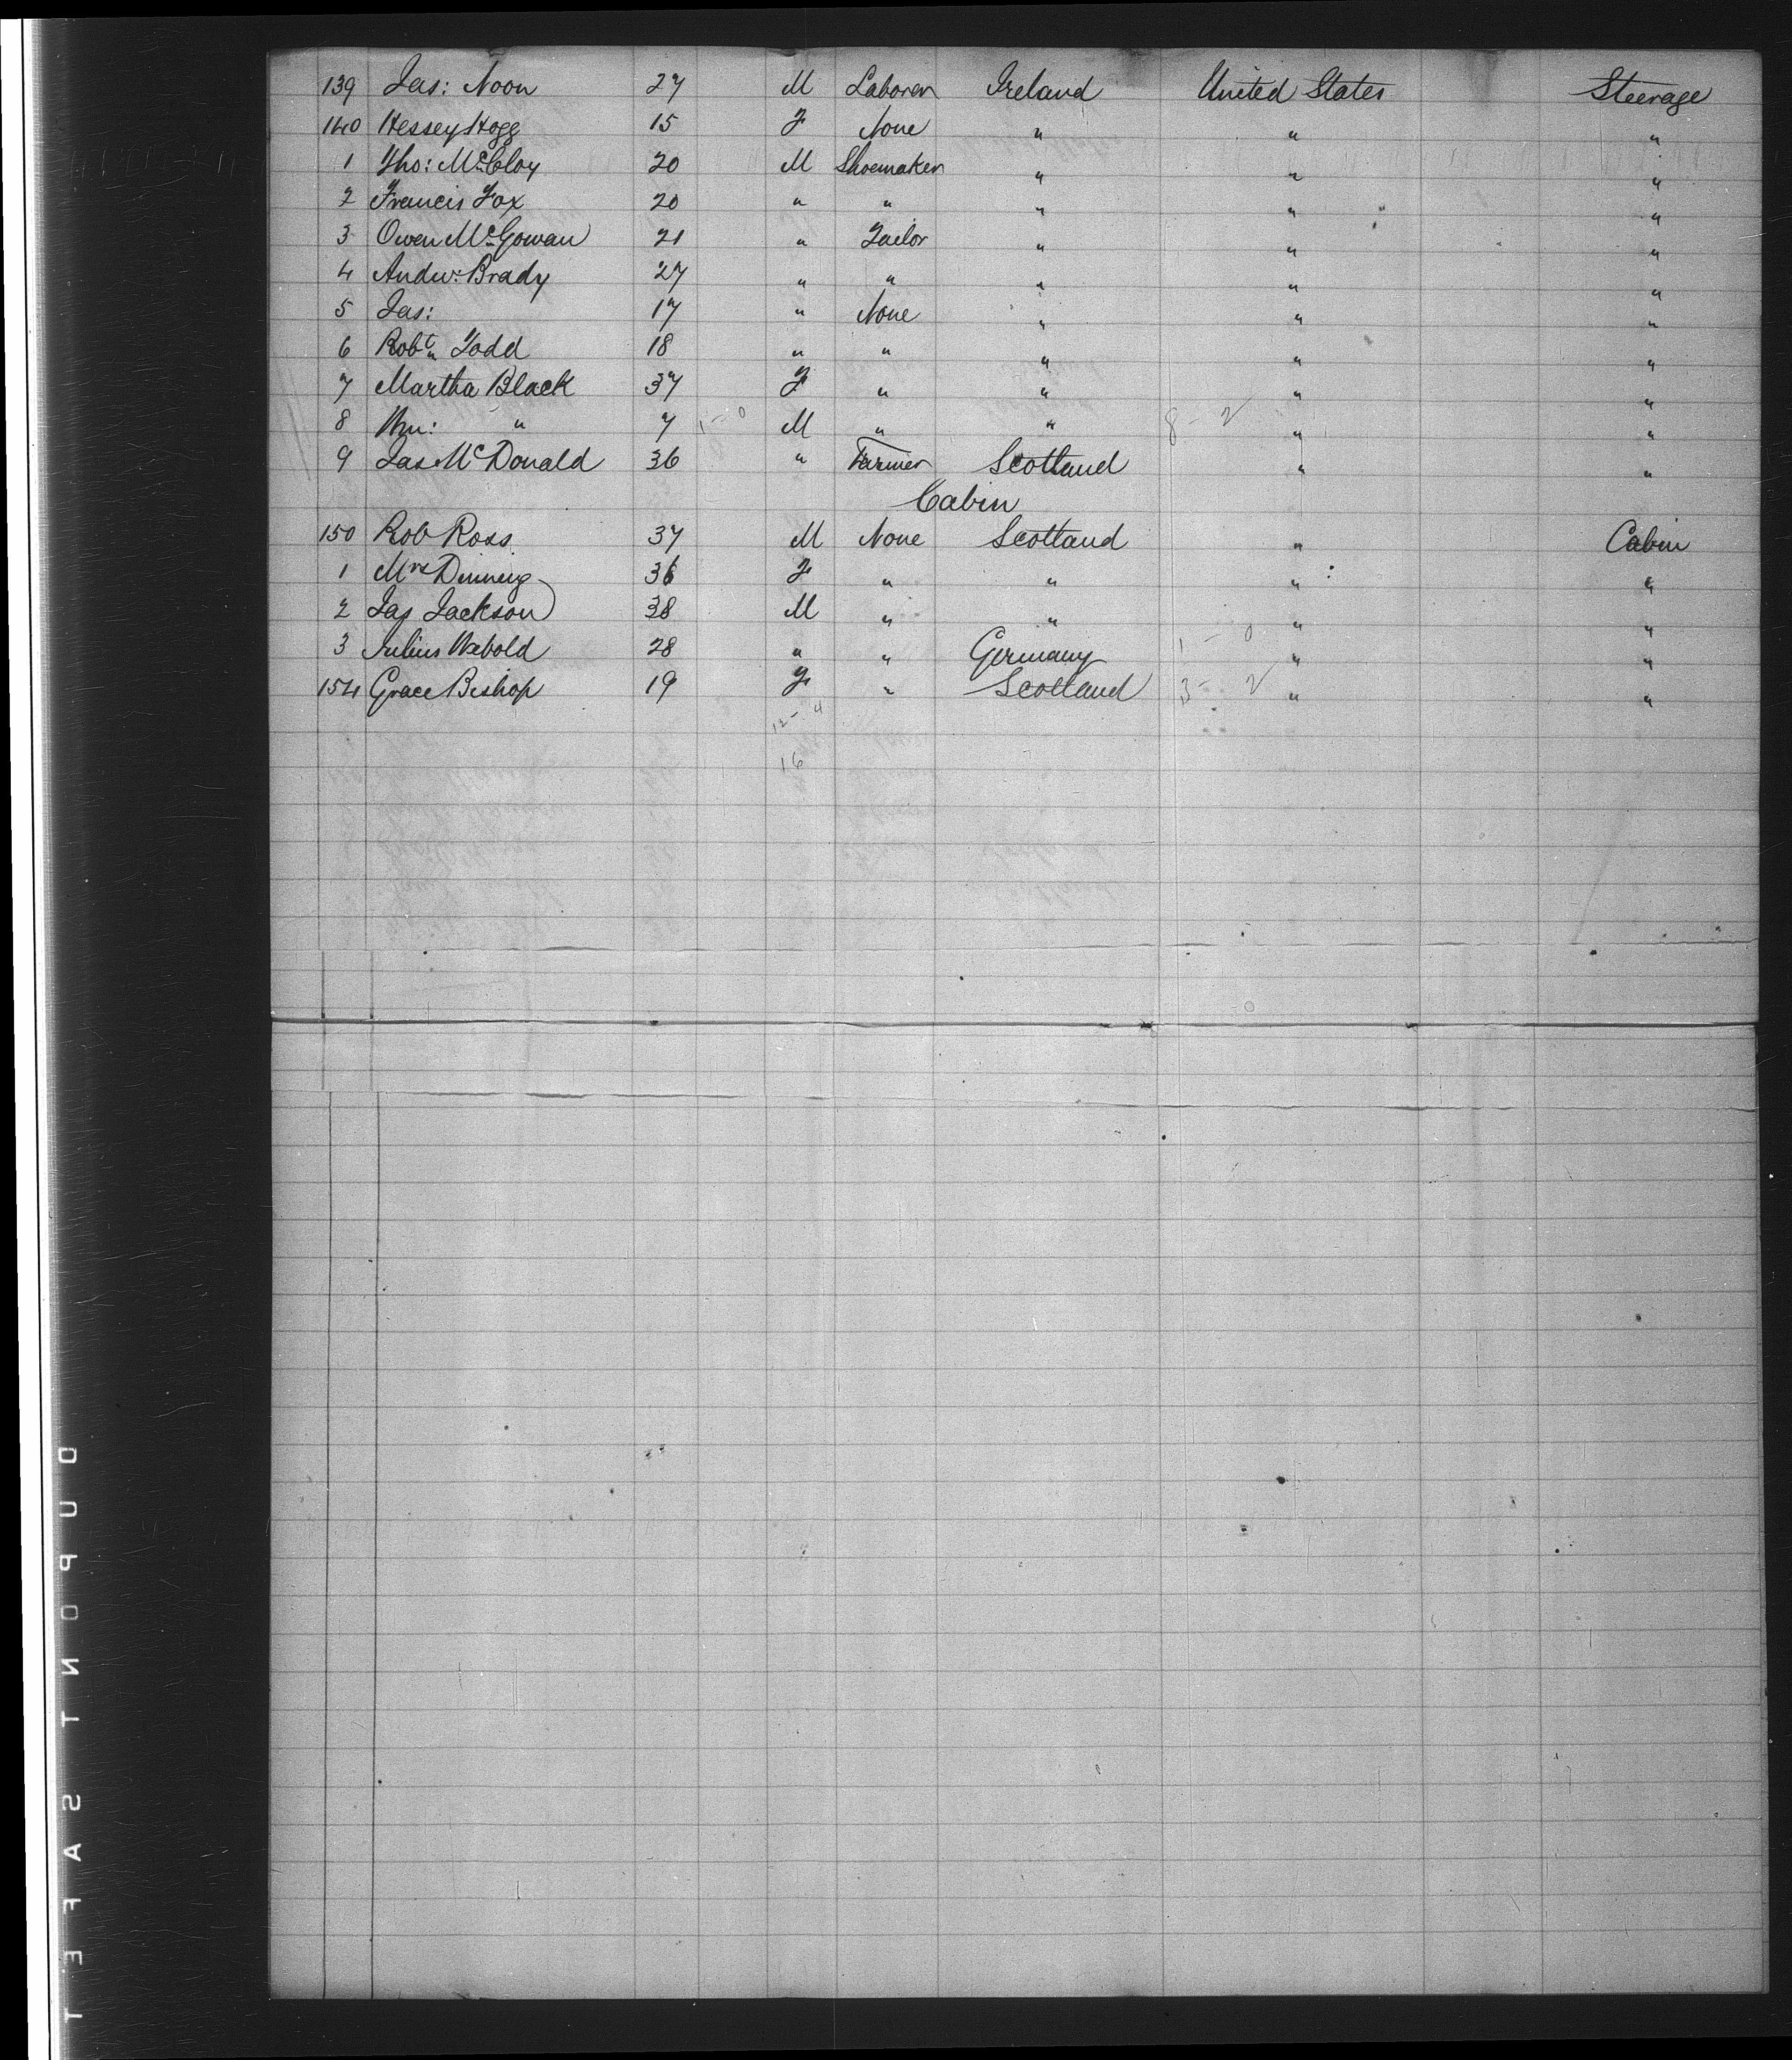 139 Jas: Noon 27 M Laborer Ireland United States Steerage
140 Hessey Hogg 15 F None " " "
1 Tho: McCloy 20 M Shoemaker " " "
2 Francis Fox 20 " " " " "
3 Owen McGowan 21 " Tailor " " "
4 Andw: Brady 27 " " " " "
5 Jas: 17 " None " " "
6 Robt " Todd 18 " " " " "
7 Martha Black 37 F " " " "
8 Wm: " 7 1-0 M " " 8-2 " "
9 Jas McDonald 36 " Farmer Scotland " "
Cabin
150 Rob Ross 37 M None Scotland " Cabin
1 Mrs 36 F " " " "
2 Jas Jackson 38 M " " " "
3 Julius 28 " " Germany 1-0 " "
154 Grace Bishop 19 F " Scotland 3-2 " "
12-4
16
DUPONT SAFET